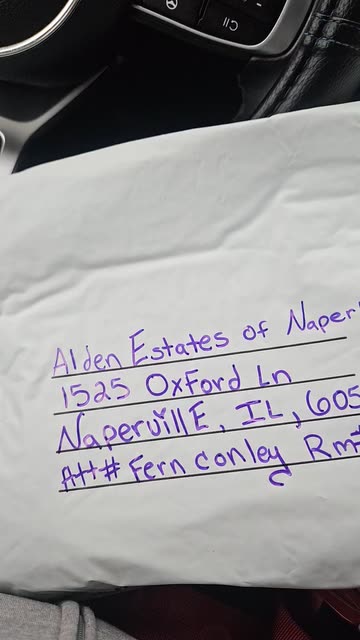 Alden Estates of Naper
1525 OxFord Ln
NapervillE, IL, 605
Att# Fern conley Rm#